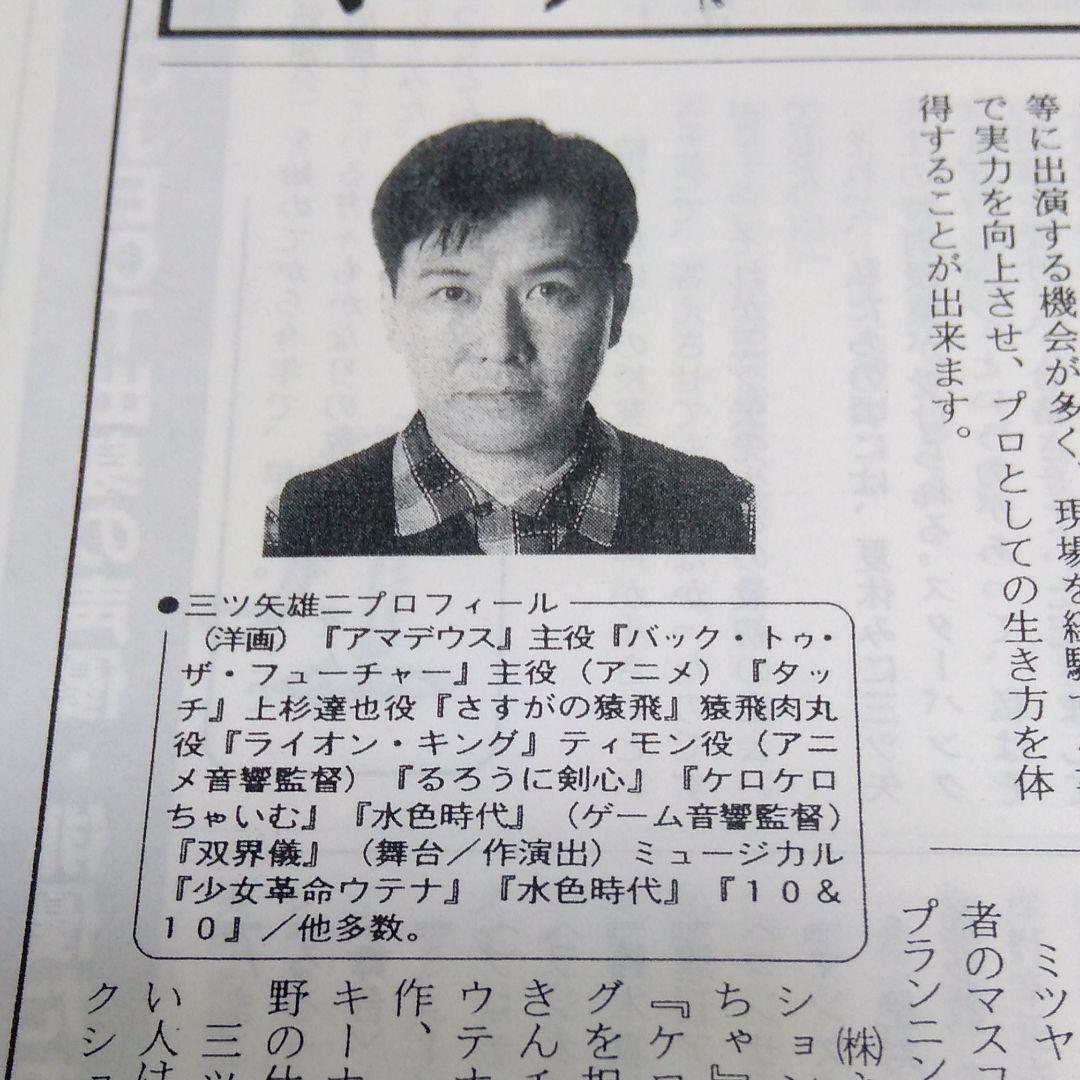 等に出演する機会が多く、現場を経験
で実力を向上させ、プロとしての生き方を体
得することが出来ます。
●三ツ矢雄二プロフィール
（洋画）『アマデウス』主役『バック・トゥ・
ザ・フューチャー』主役（アニメ）『タッ
チ』上杉達也役『さすがの猿飛』猿飛肉丸
役『ライオン・キング』ティモン役（アニ
メ音響監督）『るろうに剣心』『ケロケロ
ちゃいむ』『水色時代』（ゲーム音響監督）
『双界儀』（舞台／作演出）ミュージカル
『少女革命ウテナ』『水色時代』『１０＆
１０』／他多数。
ミツヤ
者のマスコ
プランニン
㈱
ション
ちゃ』
『ケロ
グを担
きんチ
ウテナ
作、
キーナ
野の仕
三ツ
い人は
クショ